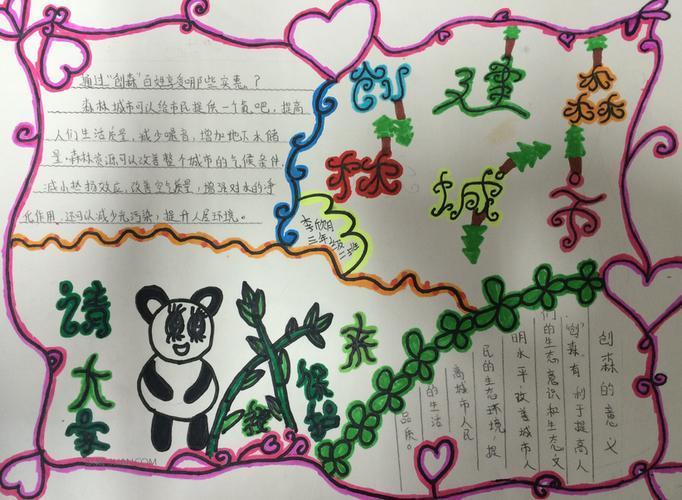 通过"创森"百姓享受哪些实惠.?
森林城市可以给市民提供一个氧吧,提高
人们生活质量,减少噪音,增加地下水储
量.森林资源可以改善整个城市的气候条件,
减小热扬效应,改善空气质量,增强对水的净
化作用.还可以减少光污染,提升人居环境。
创建森
林城市
三年级
二班
请大家
来保护
创森的意义
"创森"有利于提高人
们的生态意识和生态文
明水平,改善城市人
民的生态环境,提
高城市人民
的生活
品质。